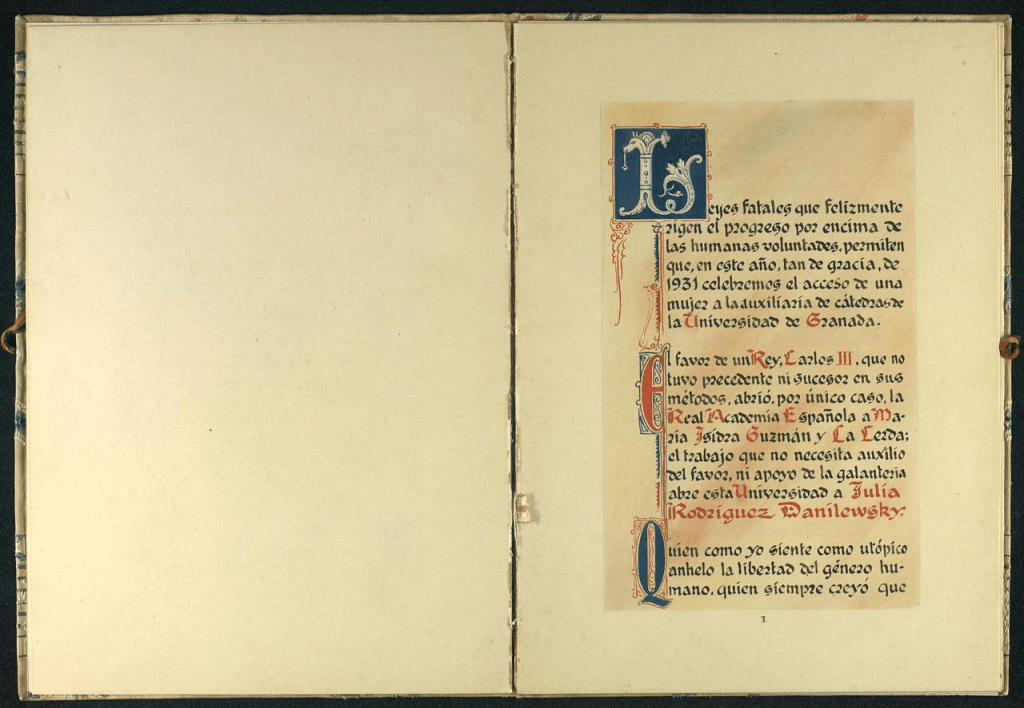 Leyes fatales que felizmente
rigen el progreso por encima de
las humanas voluntades, permiten
que, en este año, tan de gracia, de
1931 celebremos el acceso de una
mujer a la auxiliaria de cátedras de
la Universidad de Granada.
El favor de un Rey, Carlos III, que no
tuvo precedente ni sucesor en sus
métodos, abrió, por único caso, la
Real Academia Española a Ma-
ría Isidra Guzmán y La Cerda;
el trabajo que no necesita auxilio
del favor, ni apoyo de la galantería
abre esta Universidad a Julia
Rodríguez Danilewsky.
Quien como yo siente como utópico
anhelo la libertad del género hu-
mano, quien siempre creyó que
I